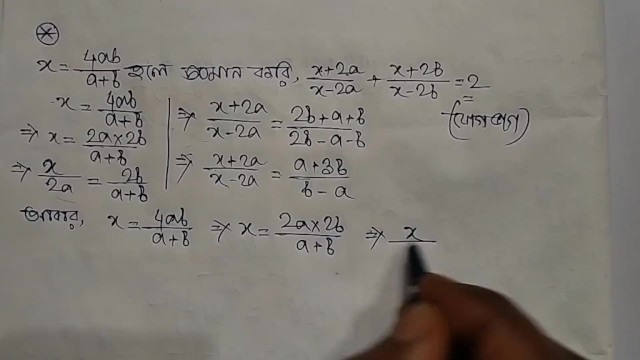 x = 4ab/a+b হলে প্রমাণ করি, x+2a/x-2a + x+2b/x-2b = 2
x = 4ab/a+b
⇒ x = 2a×2b/a+b
⇒ x/2a = 2b/a+b
⇒ x+2a/x-2a = 2b+a+b/2b-a-b (যোগভাগ)
⇒ x+2a/x-2a = a+3b/b-a
আবার, x = 4ab/a+b ⇒ x = 2a×2b/a+b ⇒ x